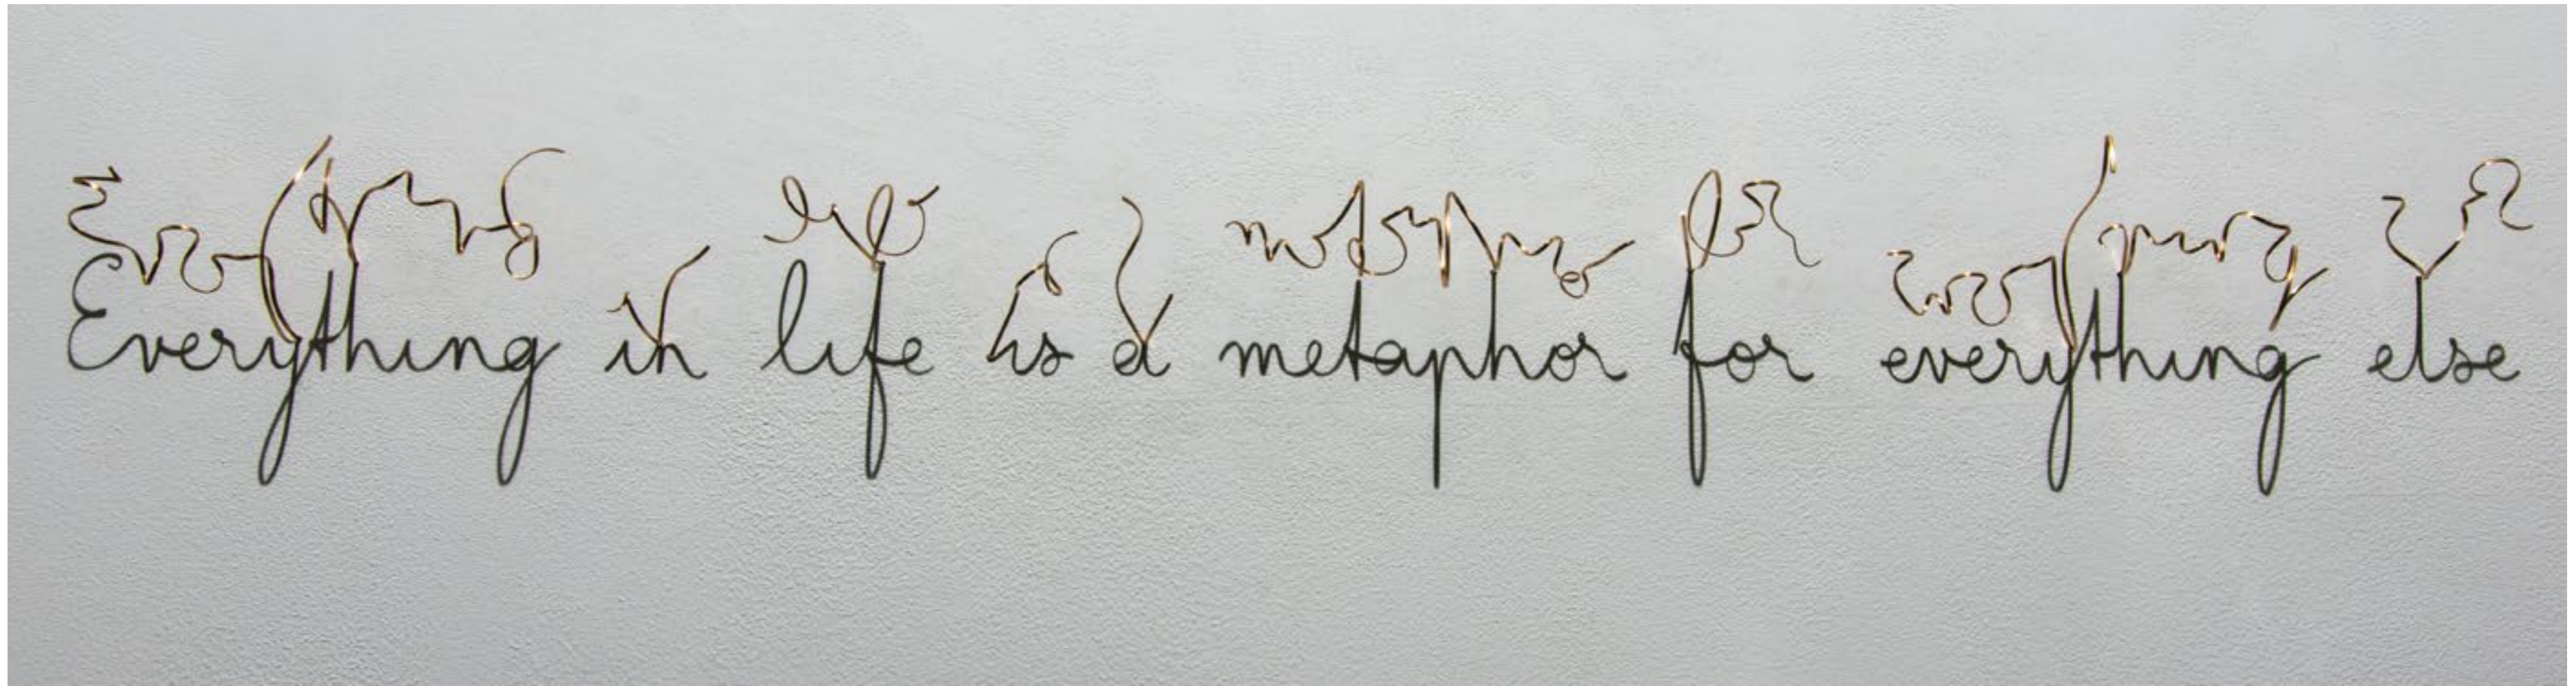 Everything in life is a metaphor for everything else